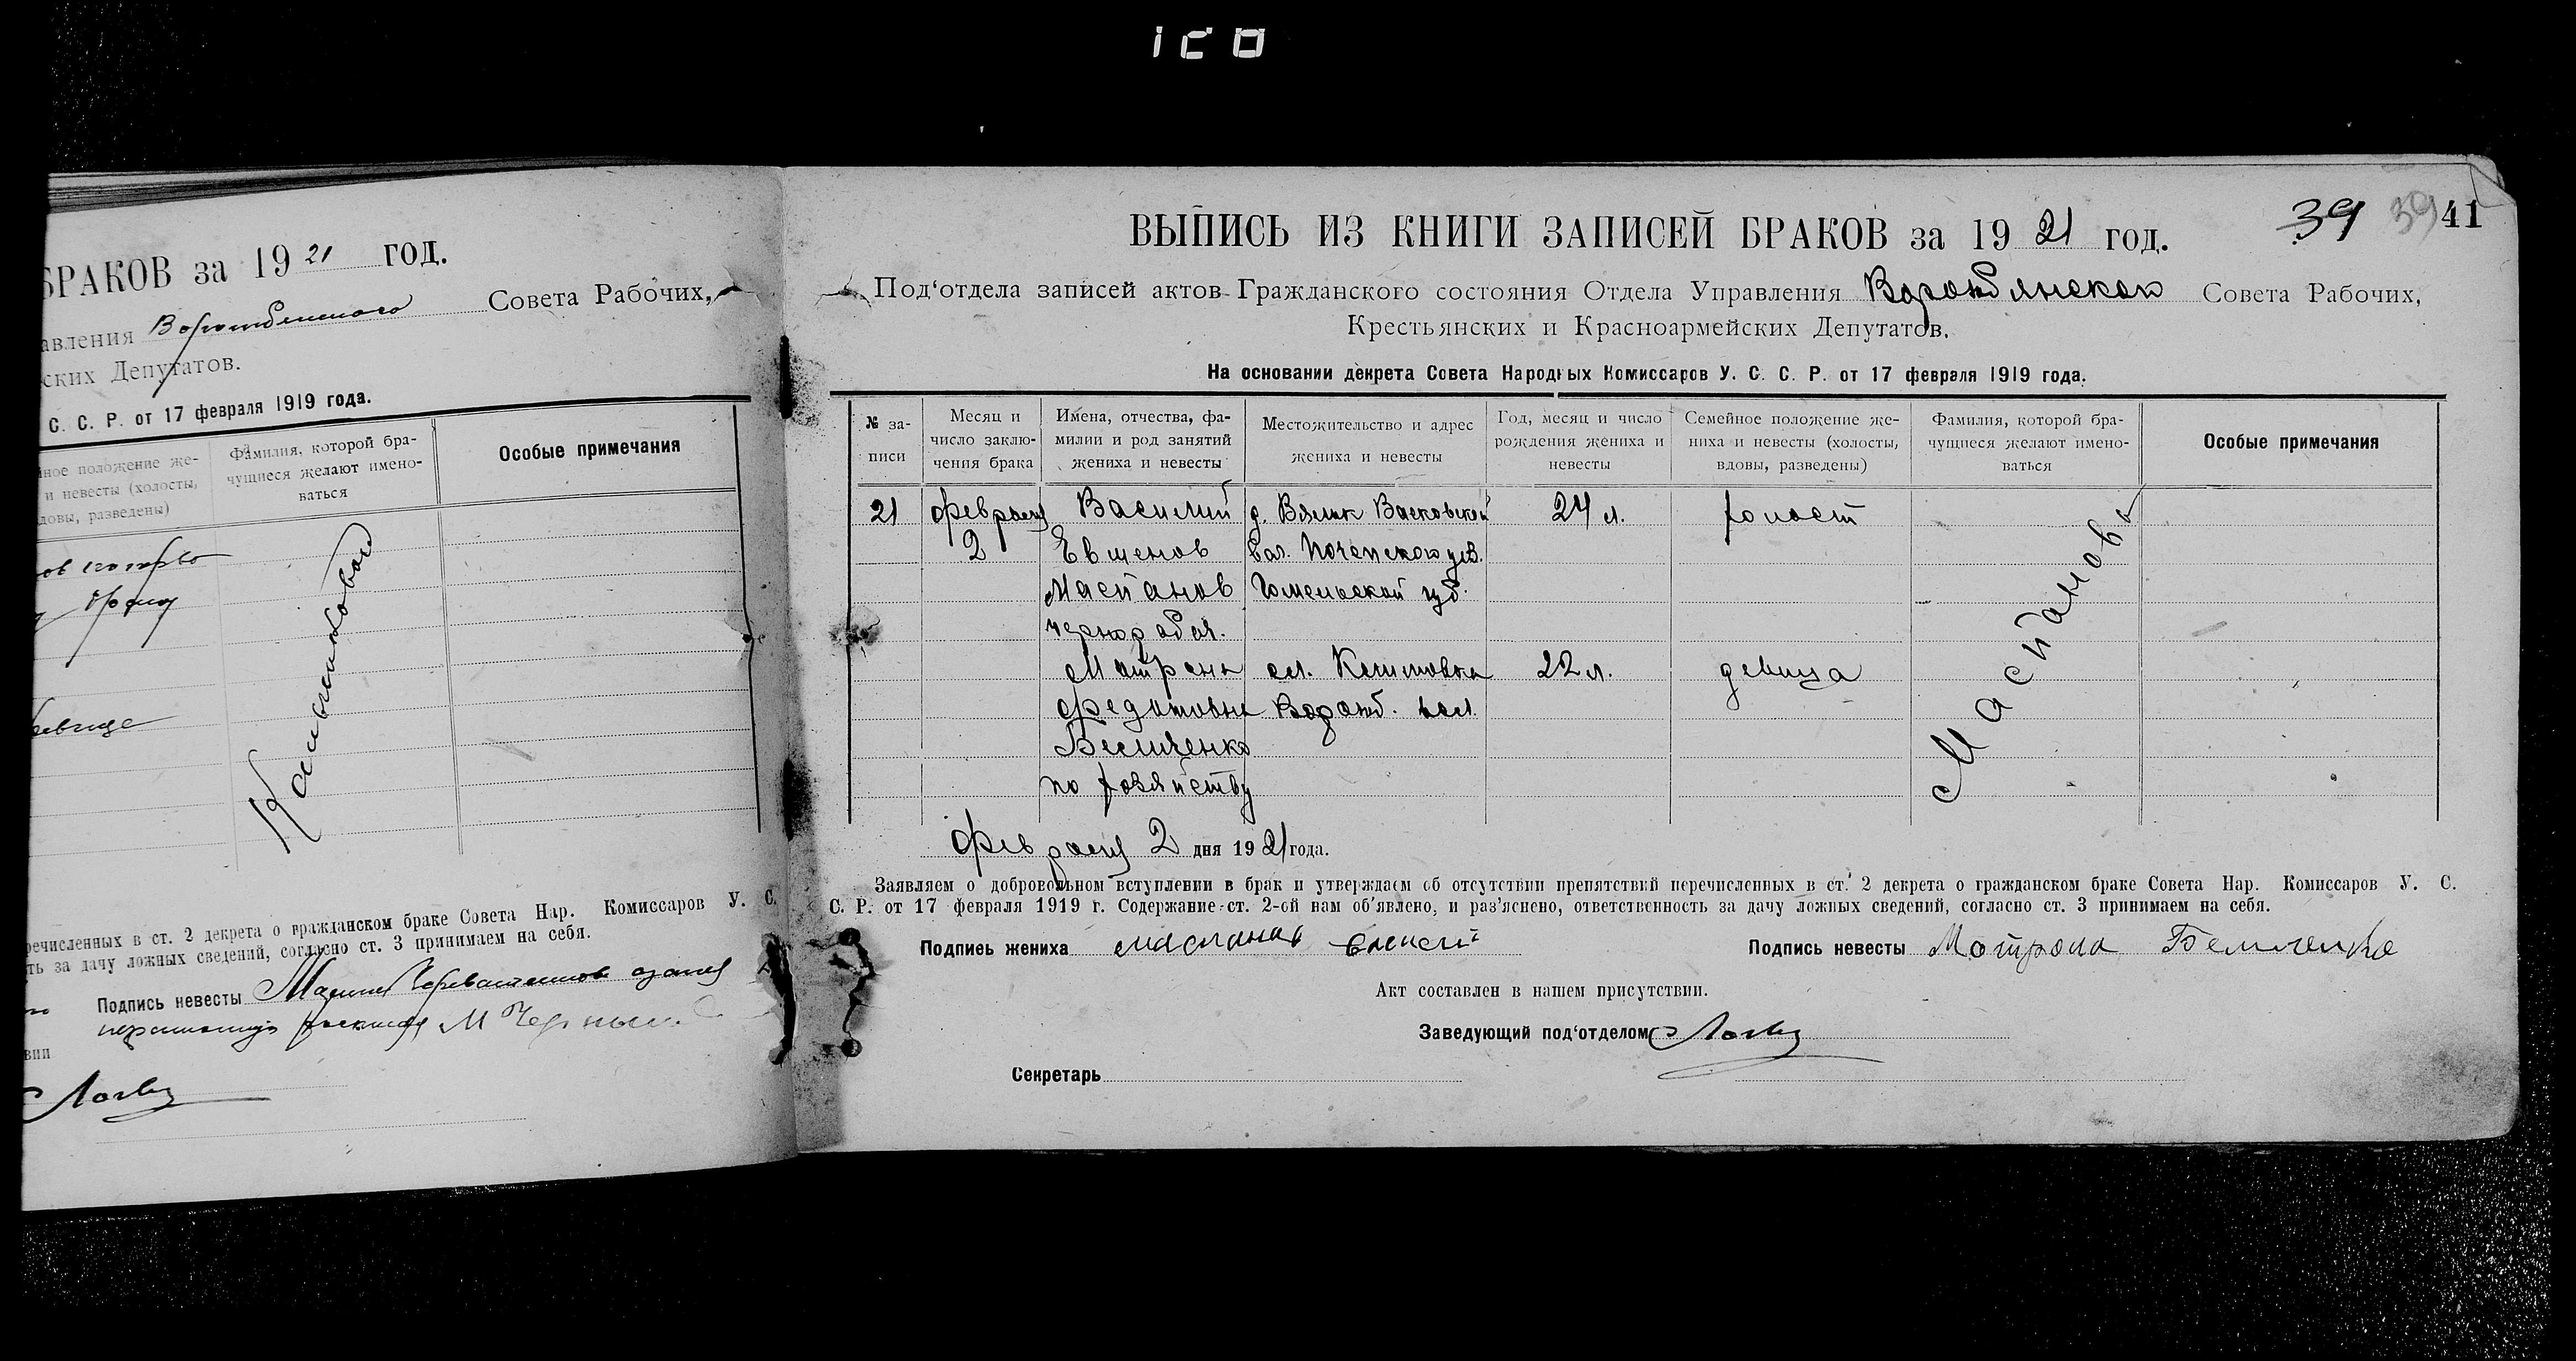 БРАКОВ за 1921 год.
авления Ворожбянского Совета Рабочих,
ских Депутатов.
С. С. Р. от 17 февраля 1919 года.
йное положение же-
и невесты (холосты,
довы, разведены)
Фамилия, которой бра-
чущиеся желают имено-
ваться
Особые примечания
речисленных в ст. 2 декрета о гражданском браке Совета Нар. Комиссаров У. С.
ть за дачу ложных сведений, согласно ст. 3 принимаем на себя.
Подпись невесты
вии
39 39 41
ВЫПИСЬ ИЗ КНИГИ ЗАПИСЕЙ БРАКОВ за 1921 год.
Под‘отдела записей актов Гражданского состояния Отдела Управления Ворожбянского Совета Рабочих,
Крестьянских и Красноармейских Депутатов.
На основании декрета Совета Народных Комиссаров У. С. С. Р. от 17 февраля 1919 года.
№ за-
писи
Месяц и
число заклю-
чения брака
Имена, отчества, фа-
милии и род занятий
жениха и невесты
Местожительство и адрес
жениха и невесты
Год, месяц и число
рождения жениха и
невесты
Семейное положение же-
ниха и невесты (холосты,
вдовы, разведены)
Фамилия, которой бра-
чущиеся желают имено-
ваться
Особые примечания
21
февраля
2
Василий
Евменов
Маспанов
чернораб.
Матрена
Федотовна
по хозяйству
д. Вялик
вол. Почепского уез.
Гомельской губ.
сл.
Ворожб. вол.
24 л.
22 л.
холост
девица
Маспановы
Февраля 2 дня 1921 года.
Заявляем о добровольном вступлении в брак и утверждаем об отсутствии препятствий перечисленных в ст. 2 декрета о гражданском браке Совета Нар. Комиссаров У. С.
С. Р. от 17 февраля 1919 г. Содержание ст. 2-ой нам об'явлено, и раз'яснено, ответственность за дачу ложных сведений, согласно ст. 3 принимаем на себя.
Подпись жениха
Подпись невесты Мотрона
Акт составлен в нашем присутствии.
Заведующий под‘отделом
Секретарь